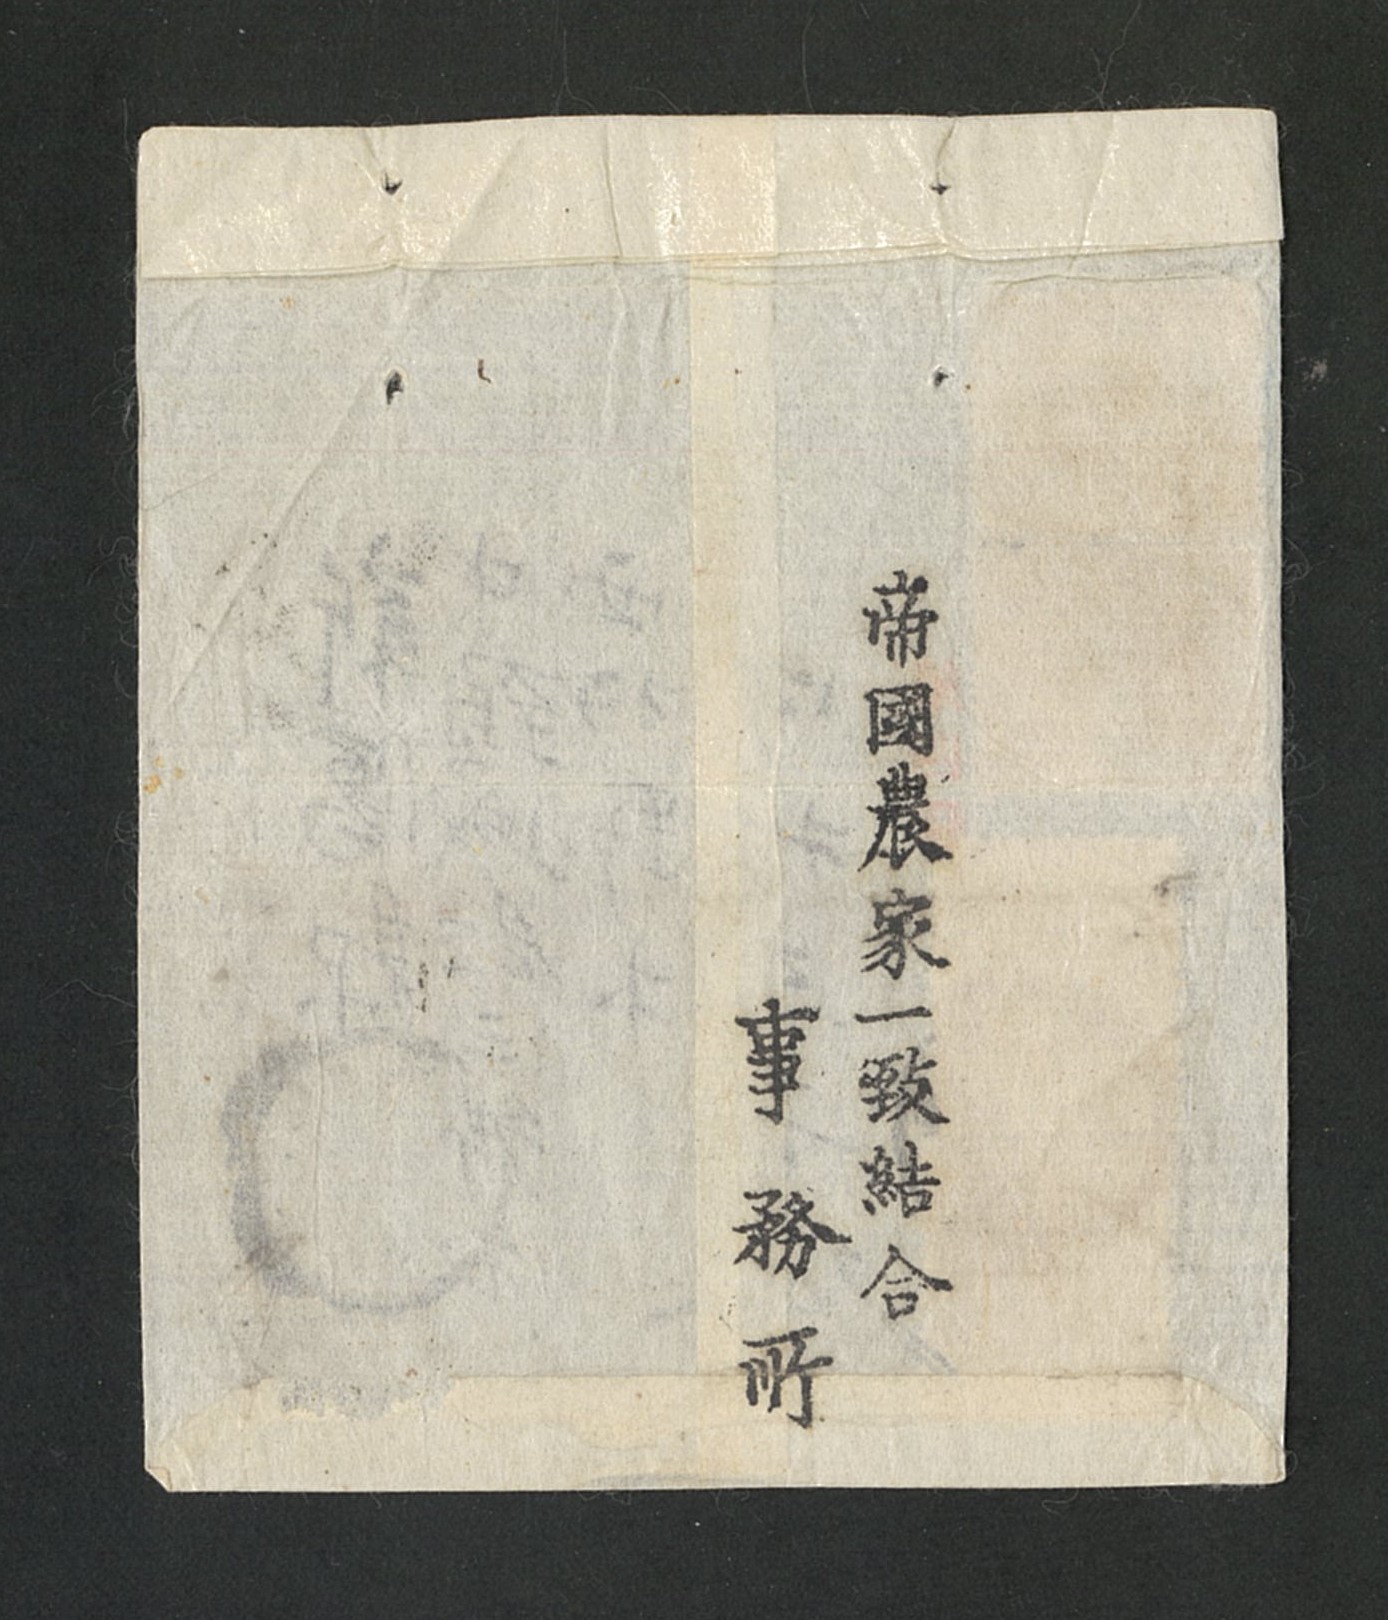 帝國農家一致結合
事務所